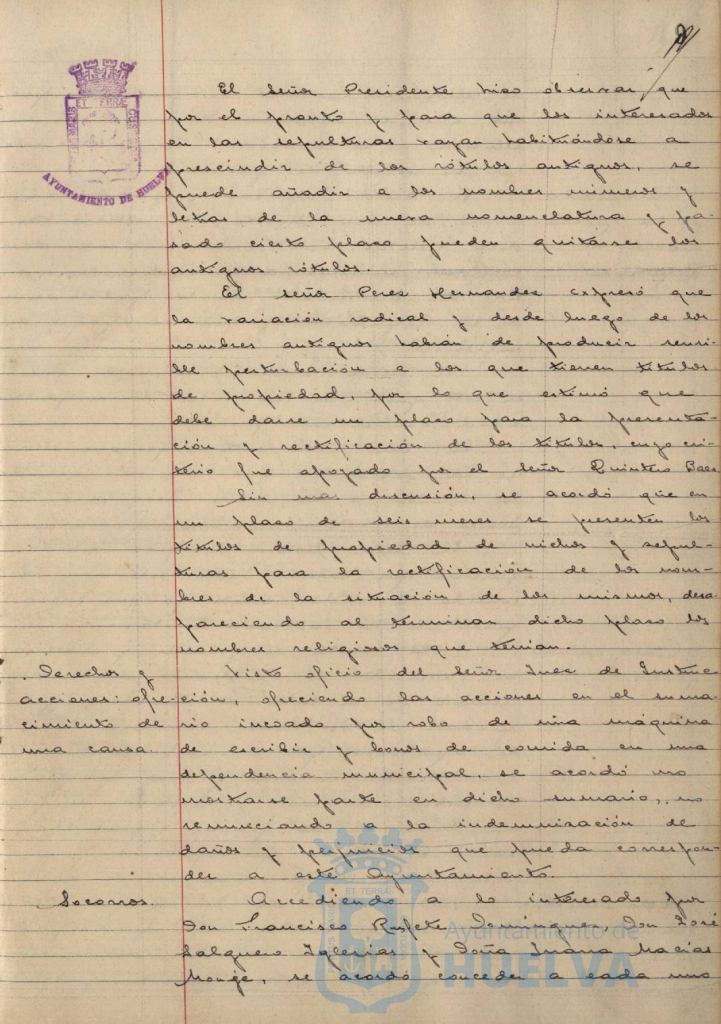 El señor Presidente hizo observar que
por el pronto y para que los interesados
en las sepulturas vayan habituándose a
prescindir de los rótulos antiguos, se
puede añadir a los nombres números y
letras de la nueva nomenclatura y pa-
sado cierto plazo pueden quitarse los
antiguos rótulos.
El señor Perez Hernandez expresó que
la variación radical y desde luego de los
nombres antiguos habrán de producir sensi-
ble perturbación a los que tienen títulos
de propiedad, por lo que estimó que
debe darse un plazo para la presenta-
ción y rectificación de los títulos, cuyo cri-
terio fue apoyado por el señor Quintero Baez
Sin mas discusión, se acordó que en
un plazo de seis meses se presenten los
títulos de propiedad de nichos y sepul-
turas para la rectificación de los nom-
bres de la situación de los mismos, desa-
pareciendo al terminar dicho plazo los
nombres religiosos que tenian.
Derechos y
acciones: ofre-
cimiento de
una causa.
Visto oficio del señor Juez de Instruc-
ción, ofreciendo las acciones en el suma-
rio incoado por robo de una máquina
de escribir y bonos de comida en una
dependencia municipal, se acordó no
mostrarse parte en dicho sumario, no
renunciando a la indemnización de
daños y perjuicios que pueda correspon-
der a este Ayuntamiento.
Socorros.
Accediendo a lo interesado por
Don Francisco Rufete Dominguez, Don José
Salguero Iglesias y Doña Juana Macías
Monge, se acordó conceder a cada uno
AYUNTAMIENTO DE HUELVA
Ayuntamiento de
HUELVA